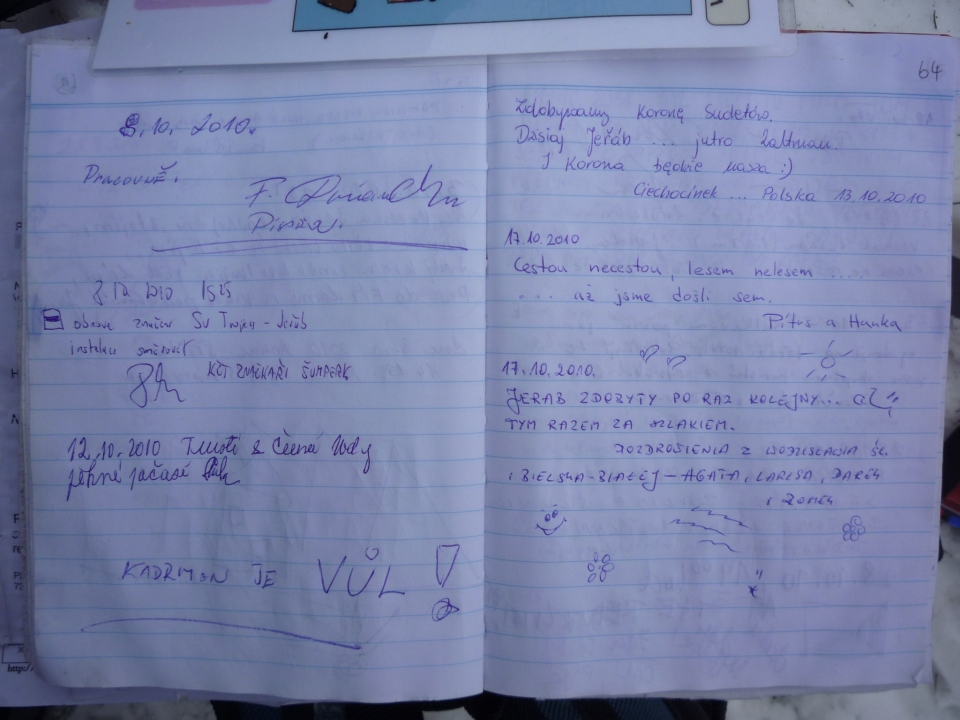 8.10. 2010.
Pracovně.
F.
8.10 2010 15
obnova značení Sv Trojice - Jeřáb
instalace směrovek
KČT ZNAČKAŘI ŠUMPERK
12.10.2010 z Černé Vody
pěkné počasí
KADRMON JE VŮL!
64
Zdobywamy Koronę Sudetów.
Dzisiaj Jeřáb ... jutro
I Korona będzie nasza :)
Ciechocinek ... Polska 13.10.2010
17.10.2010
Cestou necestou, lesem nelesem ...
... až jsme došli sem.
a Hanka
17.10.2010.
JERAB ZDOBYTY PO RAZ KOLEJNY...
TYM RAZEM ZA SZLAKIEM.
POZDROWIENIA Z WODZISŁAWIA ŚL.
I BIELSKA-BIAŁEJ - AGATA, LARISA,
I